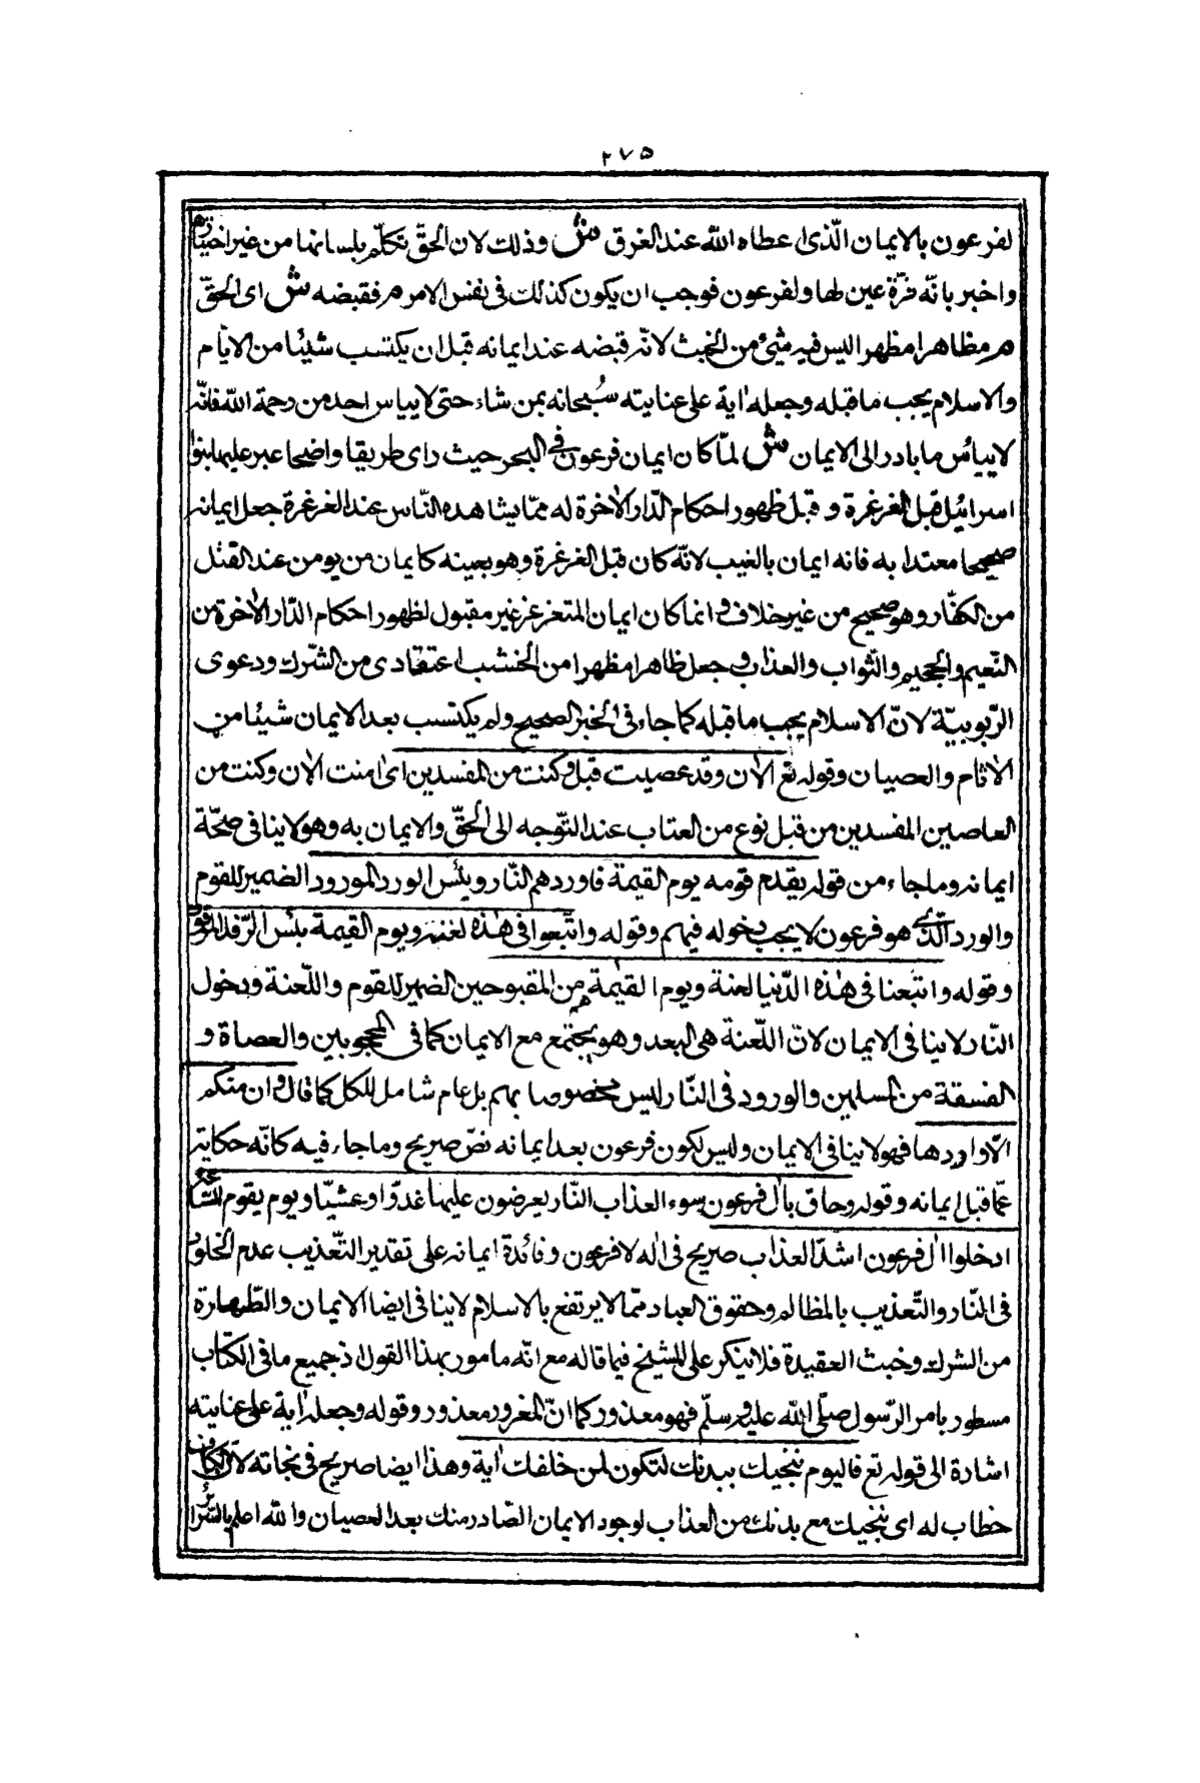 ٢٧٥
لفرعون بالايمان الّذى اعطاه اللّه عند الغرق ش وذلك لان الحقّ تكلّم بلسانها من غير اختيارها
واخبر بانّه قرّة عين لها ولفرعون فوجب ان يكون كذلك فى نفس الامر م فقبضه ش اى الحقّ
م طاهرا مطهرا ليس فيه شئ من الخبث لانّه قبضه عند ايمانه قبل ان يكتسب شيئا من الاثام
والاسلام يجب ما قبله وجعله اية على عنايته سُبحانه بمن شاء حتى لا ييأس احد من رحمة اللّه فانّه
لا ييأس ما بادر الى الايمان ش لمّا كان ايمان فرعون فى البحر حيث راى طريقا واضحا عبر عليها بنوا
اسرائيل قبل الغرغرة وقبل ظهور احكام الدّار الاخرة له ممّا يشاهده النّاس عند الغرغرة جعل ايمانه
صحيحا معتدا به فانه ايمان بالغيب لانّه كان قبل الغرغرة وهو بعينه كايمان من يومن عند القتل
من الكفّار وهو صحيح من غير خلاف وانما كان ايمان المتغرغر غير مقبول لظهور احكام الدّار الاخرة من
النّعيم والجحيم والثواب والعذاب وجعل طاهرا مطهرا من الخبث اعتقادى من الشّرك ودعوى
الرّبوبيّة لانّ الاسلام يجب ما قبله كما جاء فى الخبر الصحيح ولم يكتسب بعد الايمان شيئا من
الاثام والعصيان وقوله تع الان وقد عصيت قبل وكنت من المفسدين اى امنت الان وكنت من
العاصين المفسدين من قبل نوع من العتاب عند التّوجه الى الحقّ والايمان به وهو لا ينافى صحّة
ايمانه وما جاء من قوله يقدم قومه يوم القيمة فاوردهم النّار وبئس الورد المورود الضمير للقوم
والورد الّذى هو فرعون لا يجب دخوله فيهم وقوله واتّبعوا فى هذه لعنة ويوم القيمة بئس الرّفد المرفود
وقوله واتبعنا فى هذه الدّنيا لعنة ويوم القيمة هم من المقبوحين الضمير للقوم واللّعنة ودخول
النّار لا ينافى الايمان لانّ اللّعنة هى البعد وهو يجتمع مع الايمان كما فى المحجوبين والعصاة و
الفسقة من المسلمين والورود فى النّار ليس مخصوصا بهم بل عام شامل للكل كما قال وان منكم
الّا واردها فهو لا ينافى الايمان وليس لكون فرعون بعد ايمانه نصّ صريح وما جاء فيه كانّه حكاية
عمّا قبل ايمانه وقوله وحاق بال فرعون سوء العذاب النّار يعرضون عليها غدوّا وعشيّا ويوم يقوم السّاعة
ادخلوا ال فرعون اشدّ العذاب صريح فى اله لا فرعون وفائدة ايمانه على تقدير التّعذيب عدم الخلود
فى النّار والتّعذيب بالمظالم وحقوق العباد ممّا لا يرتفع بالاسلام لا ينافى ايضا الايمان والطّهارة
من الشرك وخبث العقيدة فلا ينكر على الشيخ فيما قاله مع انّه مامور بهذا القول اذ جميع ما فى الكتاب
مسطور بامر الرّسول صلّى اللّه عليه وسلّم فهو معذور كما انّ المغرور معذور وقوله وجعله اية على عنايته
اشارة الى قوله تع فاليوم ننجيك ببدنك لتكون لمن خلفك اية وهذا ايضا صريح فى نجاته لانّ الكاف
خطاب له اى ننجيك مع بدنك من العذاب لوجود الايمان الصّادر منك بعد العصيان واللّه اعلم بالسّرائر